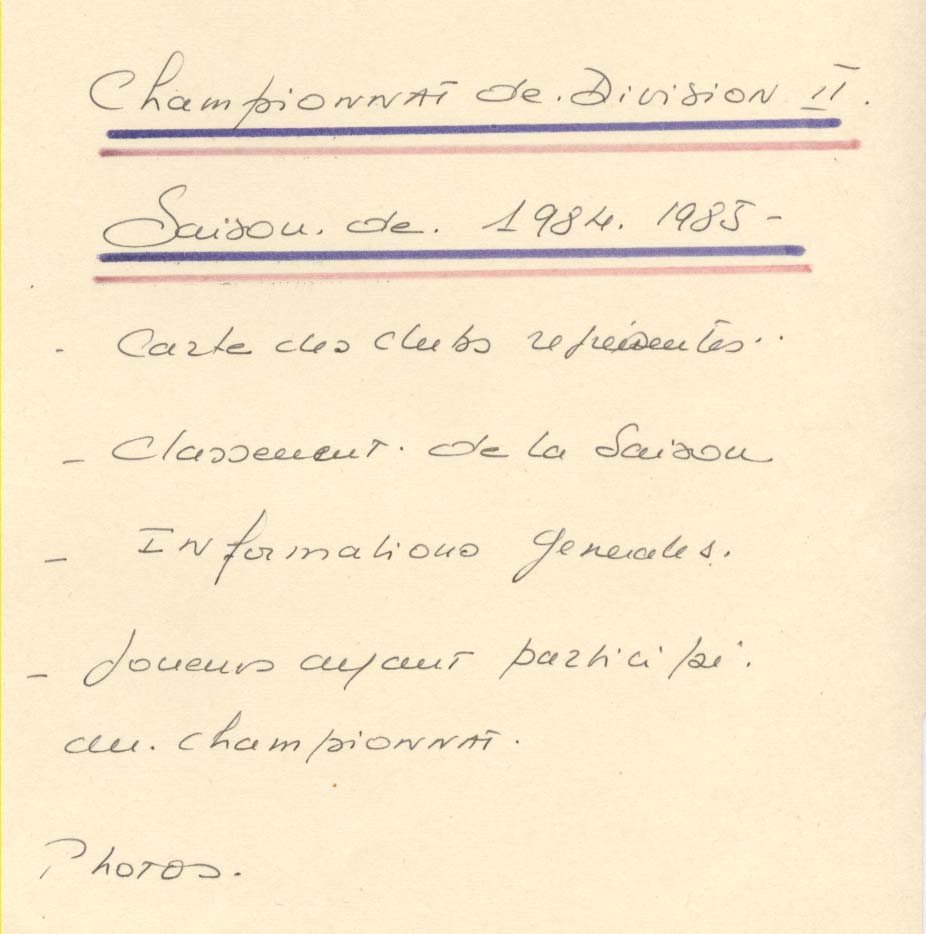 Championnat de. Division II.
Saison. de. 1984. 1985-
- Carte des clubs représentés..
- Classement. de la Saison
- Informations Generales.
- Joueurs ayant participé.
au. championnat.
Photos.